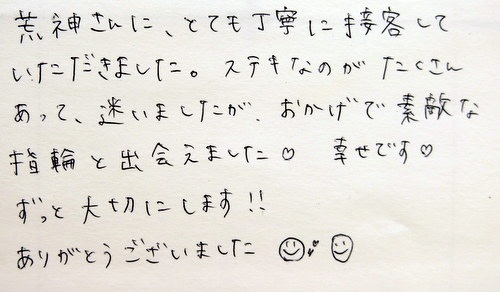 荒神さんに、とても丁寧に接客して
いただきました。ステキなのが たくさん
あって、迷いましたが、おかげで素敵な
指輪と出会えました♡ 幸せです♡
ずっと大切にします!!
ありがとうございました